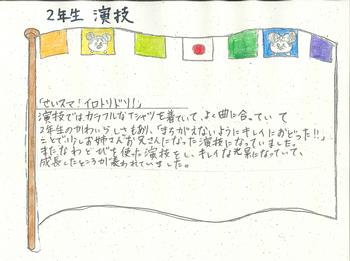 2年生 演技
「せいスマ!イロトリドリ!」
演技では、カラフルなTシャツを着ていて、よく曲に合っていて
2年生のかわいらしさもあり、「まちがえないようにキレイにおどった!!」
ことで少しお姉さんお兄さんになった演技になっていました。
またなわとびを使った演技をし、キレイな光景になっていて、
成長したところが表われていました。